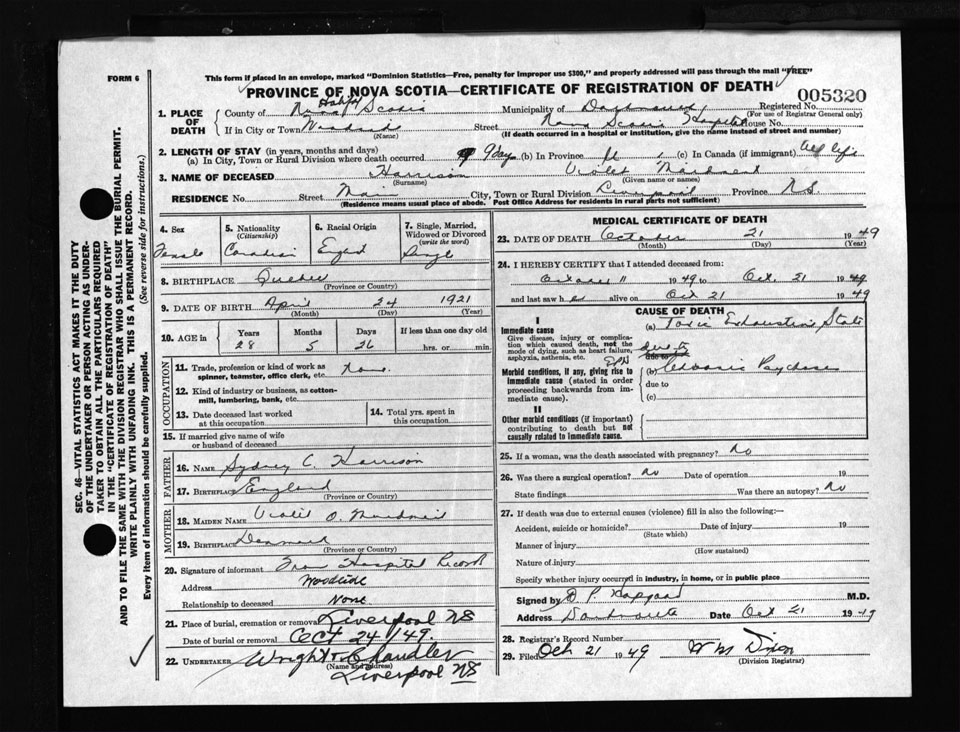 FORM 6
This form if placed in an envelope, marked "Dominion Statistics—Free, penalty for improper use $300," and properly addressed will pass through the mail "FREE"
PROVINCE OF NOVA SCOTIA—CERTIFICATE OF REGISTRATION OF DEATH
005320
1. PLACE OF DEATH
County of Halifax Nova Scotia Municipality of Dartmouth Registered No.
(For use of Registrar General only)
If in City or Town Woodside Street Nova Scotia Hospital House No.
(Name) (If death occurred in a hospital or institution, give the name instead of street and number)
2. LENGTH OF STAY (in years, months and days)
(a) In City, Town or Rural Division where death occurred 9 days (b) In Province (c) In Canada (if immigrant) all life
3. NAME OF DECEASED Harrison Violet
(Surname) (Given name or names)
RESIDENCE No. Street Main City, Town or Rural Division Liverpool Province N.S
(Residence means usual place of abode. Post Office Address for residents in rural parts not sufficient)
4. Sex Female
5. Nationality (Citizenship) Canadian
6. Racial Origin
7. Single, Married, Widowed or Divorced (write the word) Single
8. BIRTHPLACE Quebec
(Province or Country)
9. DATE OF BIRTH April 24 1921
(Month) (Day) (Year)
10. AGE in Years Months Days If less than one day old
28 5 26 hrs. or min.
OCCUPATION
11. Trade, profession or kind of work as spinner, teamster, office clerk, etc. None
12. Kind of industry or business, as cotton-mill, lumbering, bank, etc.
13. Date deceased last worked at this occupation
14. Total yrs. spent in this occupation
15. If married give name of wife or husband of deceased
FATHER
16. NAME Sydney C. Harrison
17. BIRTHPLACE England
(Province or Country)
MOTHER
18. MAIDEN NAME Violet O.
19. BIRTHPLACE Denmark
(Province or Country)
20. Signature of informant From Hospital Records
Address Woodside
Relationship to deceased None
21. Place of burial, cremation or removal Liverpool NS
Date of burial or removal Oct 24/49.
22. UNDERTAKER Wright & Chandler
(Name and address)
Liverpool NS
MEDICAL CERTIFICATE OF DEATH
23. DATE OF DEATH October 21 1949
(Month) (Day) (Year)
24. I HEREBY CERTIFY that I attended deceased from:
October 11 1949 to Oct. 21 1949
and last saw her alive on Oct 21 1949
CAUSE OF DEATH
I
Immediate cause
Give disease, injury or complication which caused death, not the mode of dying, such as heart failure, asphyxia, asthenia, etc.
(a) Toxic Exhaustion State
due to
Morbid conditions, if any, giving rise to immediate cause (stated in order proceeding backwards from immediate cause).
(b) Psychosis
due to
(c)
II
Other morbid conditions (if important) contributing to death but not causally related to immediate cause.
25. If a woman, was the death associated with pregnancy? No
26. Was there a surgical operation? No Date of operation 19
State findings Was there an autopsy? No
27. If death was due to external causes (violence) fill in also the following:—
Accident, suicide or homicide? Date of injury 19
(State which)
Manner of injury
(How sustained)
Nature of injury
Specify whether injury occurred in industry, in home, or in public place
Signed by M.D.
Address Dartmouth Date Oct 21 1949
28. Registrar's Record Number
29. Filed Oct. 21 1949 W M Dixon
(Division Registrar)
SEC. 46—VITAL STATISTICS ACT MAKES IT THE DUTY
OF THE UNDERTAKER OR PERSON ACTING AS UNDER-
TAKER TO OBTAIN ALL THE PARTICULARS REQUIRED
IN THE "CERTIFICATE OF REGISTRATION OF DEATH"
AND TO FILE THE SAME WITH THE DIVISION REGISTRAR WHO SHALL ISSUE THE BURIAL PERMIT.
WRITE PLAINLY WITH UNFADING INK. THIS IS A PERMANENT RECORD.
Every item of information should be carefully supplied. (See reverse side for instructions.)